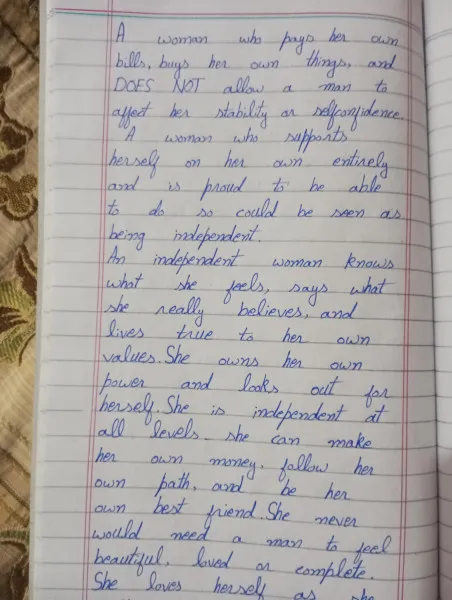 A woman who pays her own
bills, buys her own things, and
DOES NOT allow a man to
affect her stability or selfconfidence.
A woman who supports
herself on her own entirely
and is proud to be able
to do so could be seen as
being independent.
An independent woman knows
what she feels, says what
she really believes, and
lives true to her own
values. She owns her own
power and looks out for
herself. She is independent at
all levels - she can make
her own money, follow her
own path, and be her
own best friend. She never
would need a man to feel
beautiful, loved or complete.
She loves herself as she